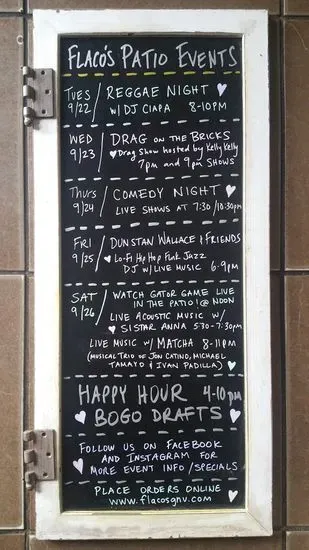 FLACO'S PATIO EVENTS
TUES / REGGAE NIGHT
9/22 W/ DJ CIAPA 8-10PM
WED / DRAG ON THE BRICKS
9/23 Drag Show hosted by Kelly Kelly
7pm and 9pm SHOWS
Thurs / COMEDY NIGHT
9/24 LIVE SHOWS AT 7:30/10:30pm
FRI / DUNSTAN WALLACE & FRIENDS
9/25 Lo-Fi Hip Hop Funk Jazz
DJ W/ LIVE MUSIC 6-9PM
SAT / WATCH GATOR GAME LIVE
9/26 IN THE PATIO! @ NOON
LIVE ACOUSTIC MUSIC W/
SISTAR ANNA 5:30-7:30pm
LIVE MUSIC W/ MATCHA 8-11PM
(MUSICAL TRIO OF JON CATINO, MICHAEL
TAMAYO & IVAN PADILLA)
HAPPY HOUR 4-10pm
BOGO DRAFTS
FOLLOW US ON FACEBOOK
AND INSTAGRAM FOR
MORE EVENT INFO/SPECIALS
PLACE ORDERS ONLINE
www.flacosgnv.com